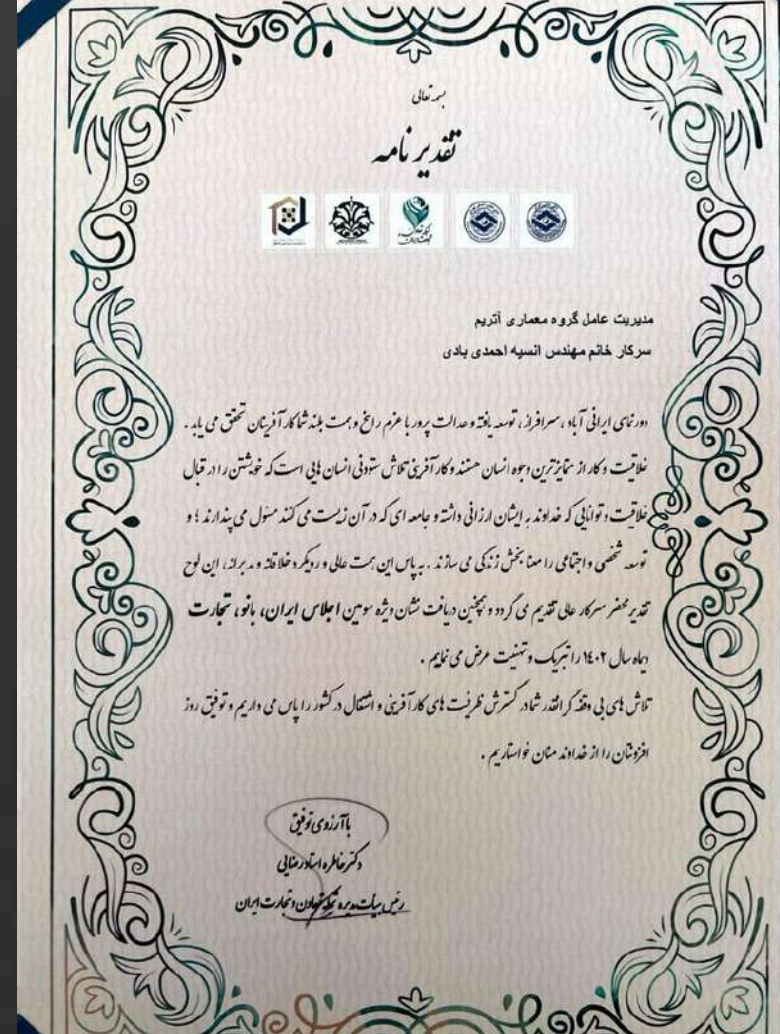 بسمه تعالی
تقدیر نامه
مدیریت عامل گروه معماری آتریم
سرکار خانم مهندس انسیه احمدی بادی
دورنمای ایرانی آباد ، سرافراز ، توسعه یافته و عدالت پرور با عزم راسخ و همت بلند شما کارآفرینان تحقق می یابد .
خلاقیت و کار از متمایزترین وجوه انسان هستند و کارآفرینی تلاش ستودنی انسان هایی است که خویشتن را در قبال
خلاقیت و توانایی که خداوند به ایشان ارزانی داشته و جامعه ای که در آن زیست می کنند مسئول می پندارند ؛ و
توسعه شخصی و اجتماعی را معنا بخش زندگی می سازند . به پاس این همت عالی و رویکرد خلاقانه و مدبرانه ، این لوح
تقدیر محضر سرکار عالی تقدیم می گردد و همچنین دریافت نشان ویژه سومین اجلاس ایران، بانو، تجارت
دیماه سال ۱۴۰۲ را تبریک و تهنیت عرض می نماییم .
تلاش های بی وقفه گرانقدر شما در گسترش ظرفیت های کارآفرینی و اشتغال در کشور را پاس می داریم و توفیق روز
افزونتان را از خداوند منان خواستاریم .
با آرزوی توفیق
دکتر خاطره استادرضایی
رئیس هیأت مدیره و تجارت ایران